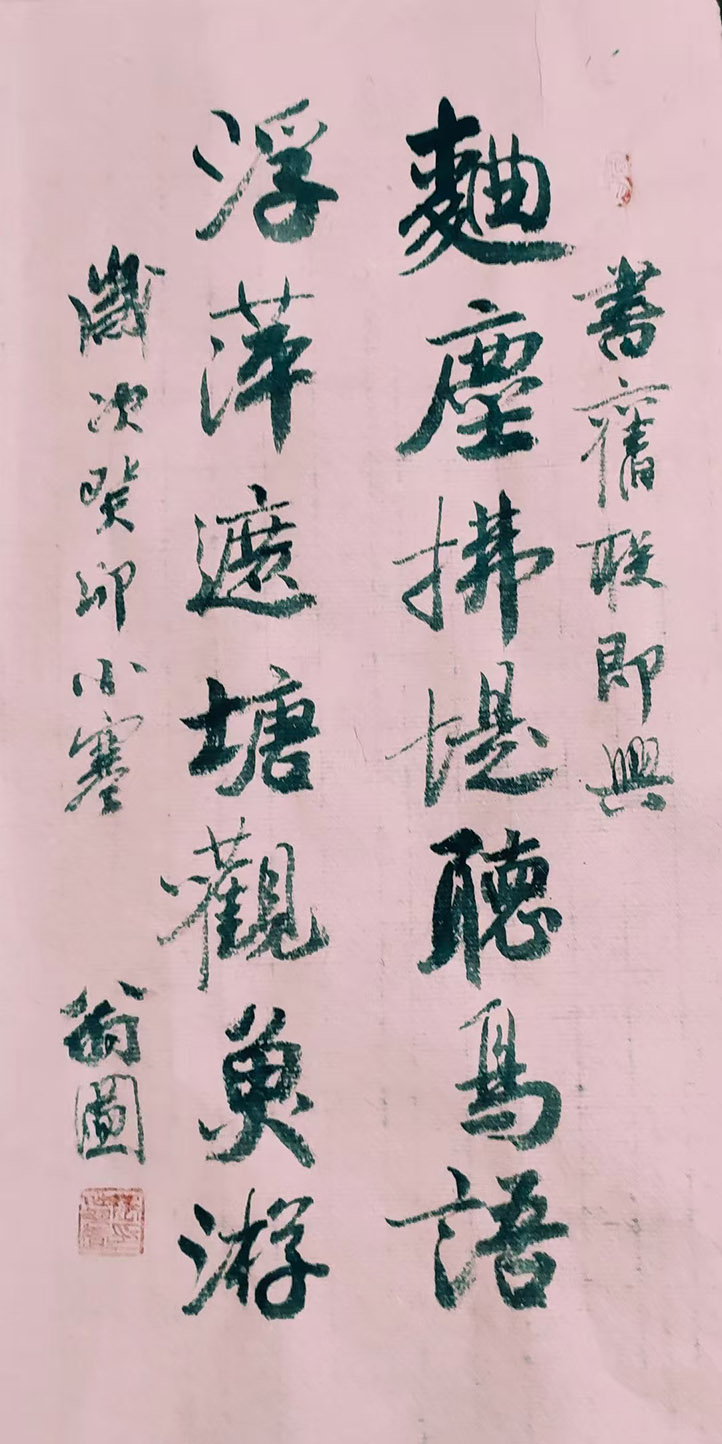 書舊联即興
麯塵拂堤聽鳥語
浮萍遮塘觀魚游
歲次癸卯小寒
翁圖